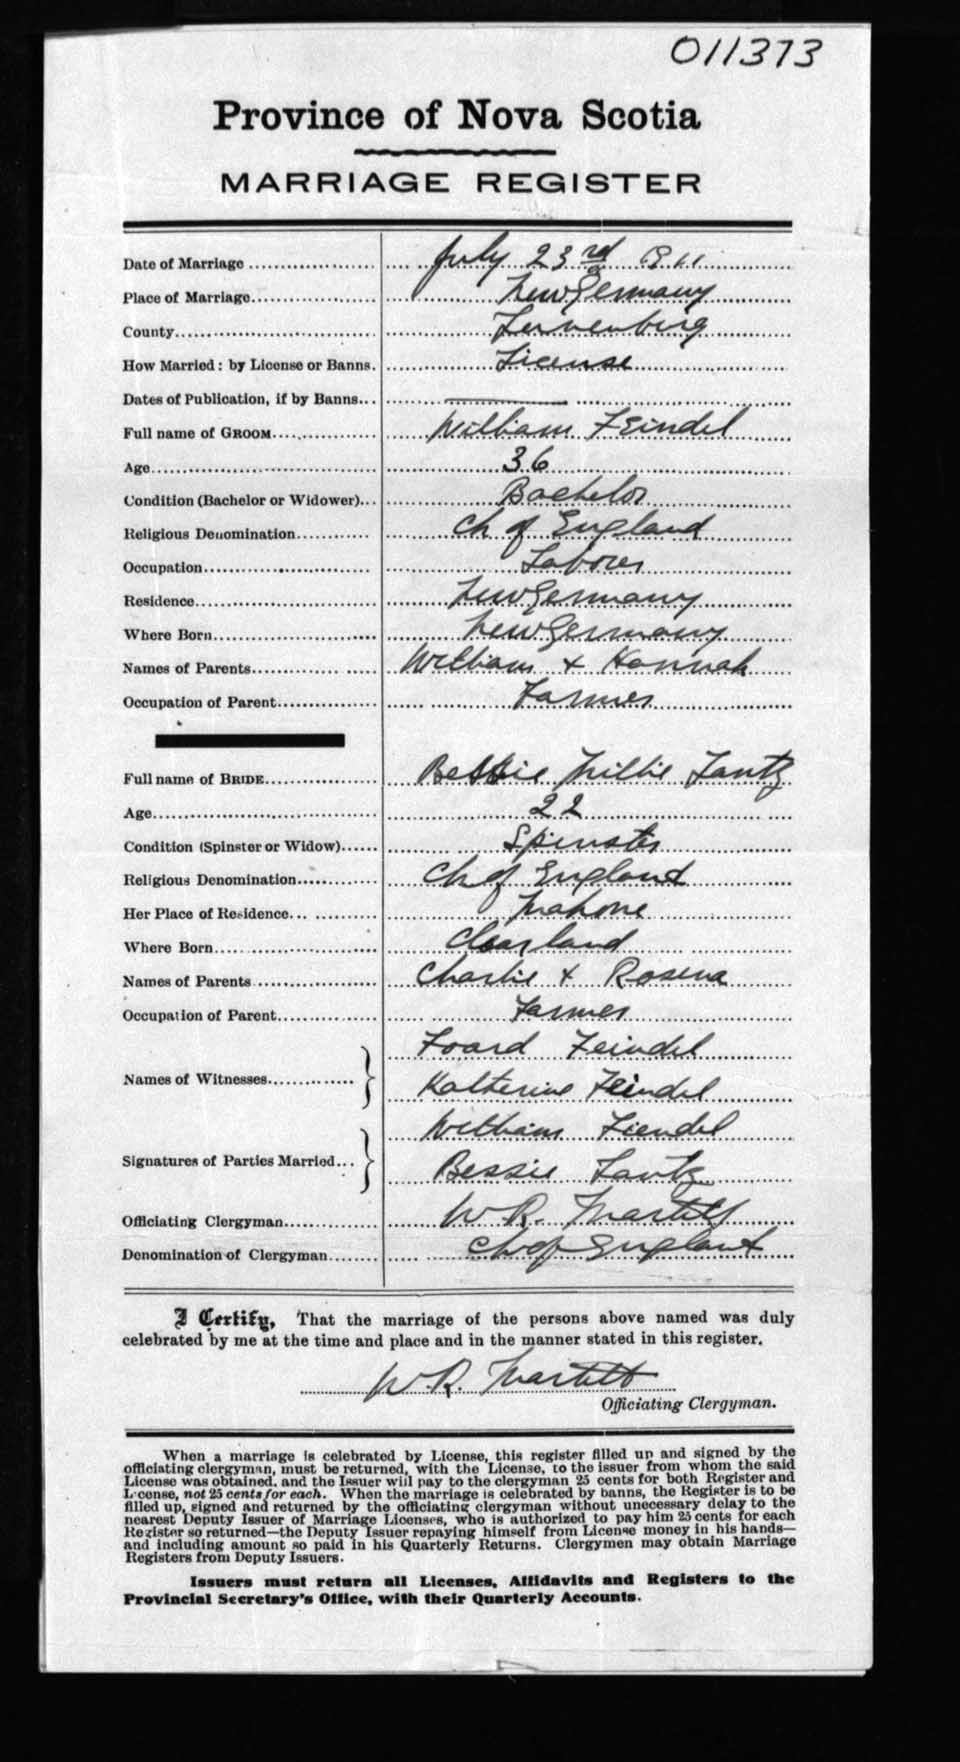 011373
Province of Nova Scotia
MARRIAGE REGISTER
Date of Marriage July 23rd 1911
Place of Marriage New Germany
County Lunenburg
How Married: by License or Banns. License
Dates of Publication, if by Banns
Full name of GROOM William Feindel
Age 36
Condition (Bachelor or Widower) Bachelor
Religious Denomination Ch of England
Occupation Laborer
Residence New Germany
Where Born New Germany
Names of Parents William & Hannah
Occupation of Parent Farmer
Full name of BRIDE Bessie Millie Lantz
Age 22
Condition (Spinster or Widow) Spinster
Religious Denomination Ch of England
Her Place of Residence Mahone
Where Born Clearland
Names of Parents Charlie & Rosena
Occupation of Parent Farmer
Foard Feindel
Names of Witnesses
Katherine Feindel
William Fiendel
Signatures of Parties Married
Bessie Lantz
Officiating Clergyman W R.
Denomination of Clergyman Ch of England
I Certify, That the marriage of the persons above named was duly
celebrated by me at the time and place and in the manner stated in this register.
W. R.
Officiating Clergyman.
When a marriage is celebrated by License, this register filled up and signed by the
officiating clergyman, must be returned, with the License, to the issuer from whom the said
License was obtained, and the Issuer will pay to the clergyman 25 cents for both Register and
License, not 25 cents for each. When the marriage is celebrated by banns, the Register is to be
filled up, signed and returned by the officiating clergyman without unecessary delay to the
nearest Deputy Issuer of Marriage Licenses, who is authorized to pay him 25 cents for each
Register so returned—the Deputy Issuer repaying himself from License money in his hands—
and including amount so paid in his Quarterly Returns. Clergymen may obtain Marriage
Registers from Deputy Issuers.
Issuers must return all Licenses, Affidavits and Registers to the
Provincial Secretary's Office, with their Quarterly Accounts.